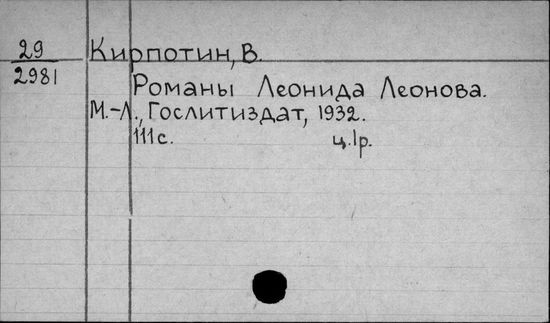 29 Кирпотин, В.
2981
Романы Леонида Леонова.
М.-Л., Гослитиздат, 1932.
111с. ц.1р.